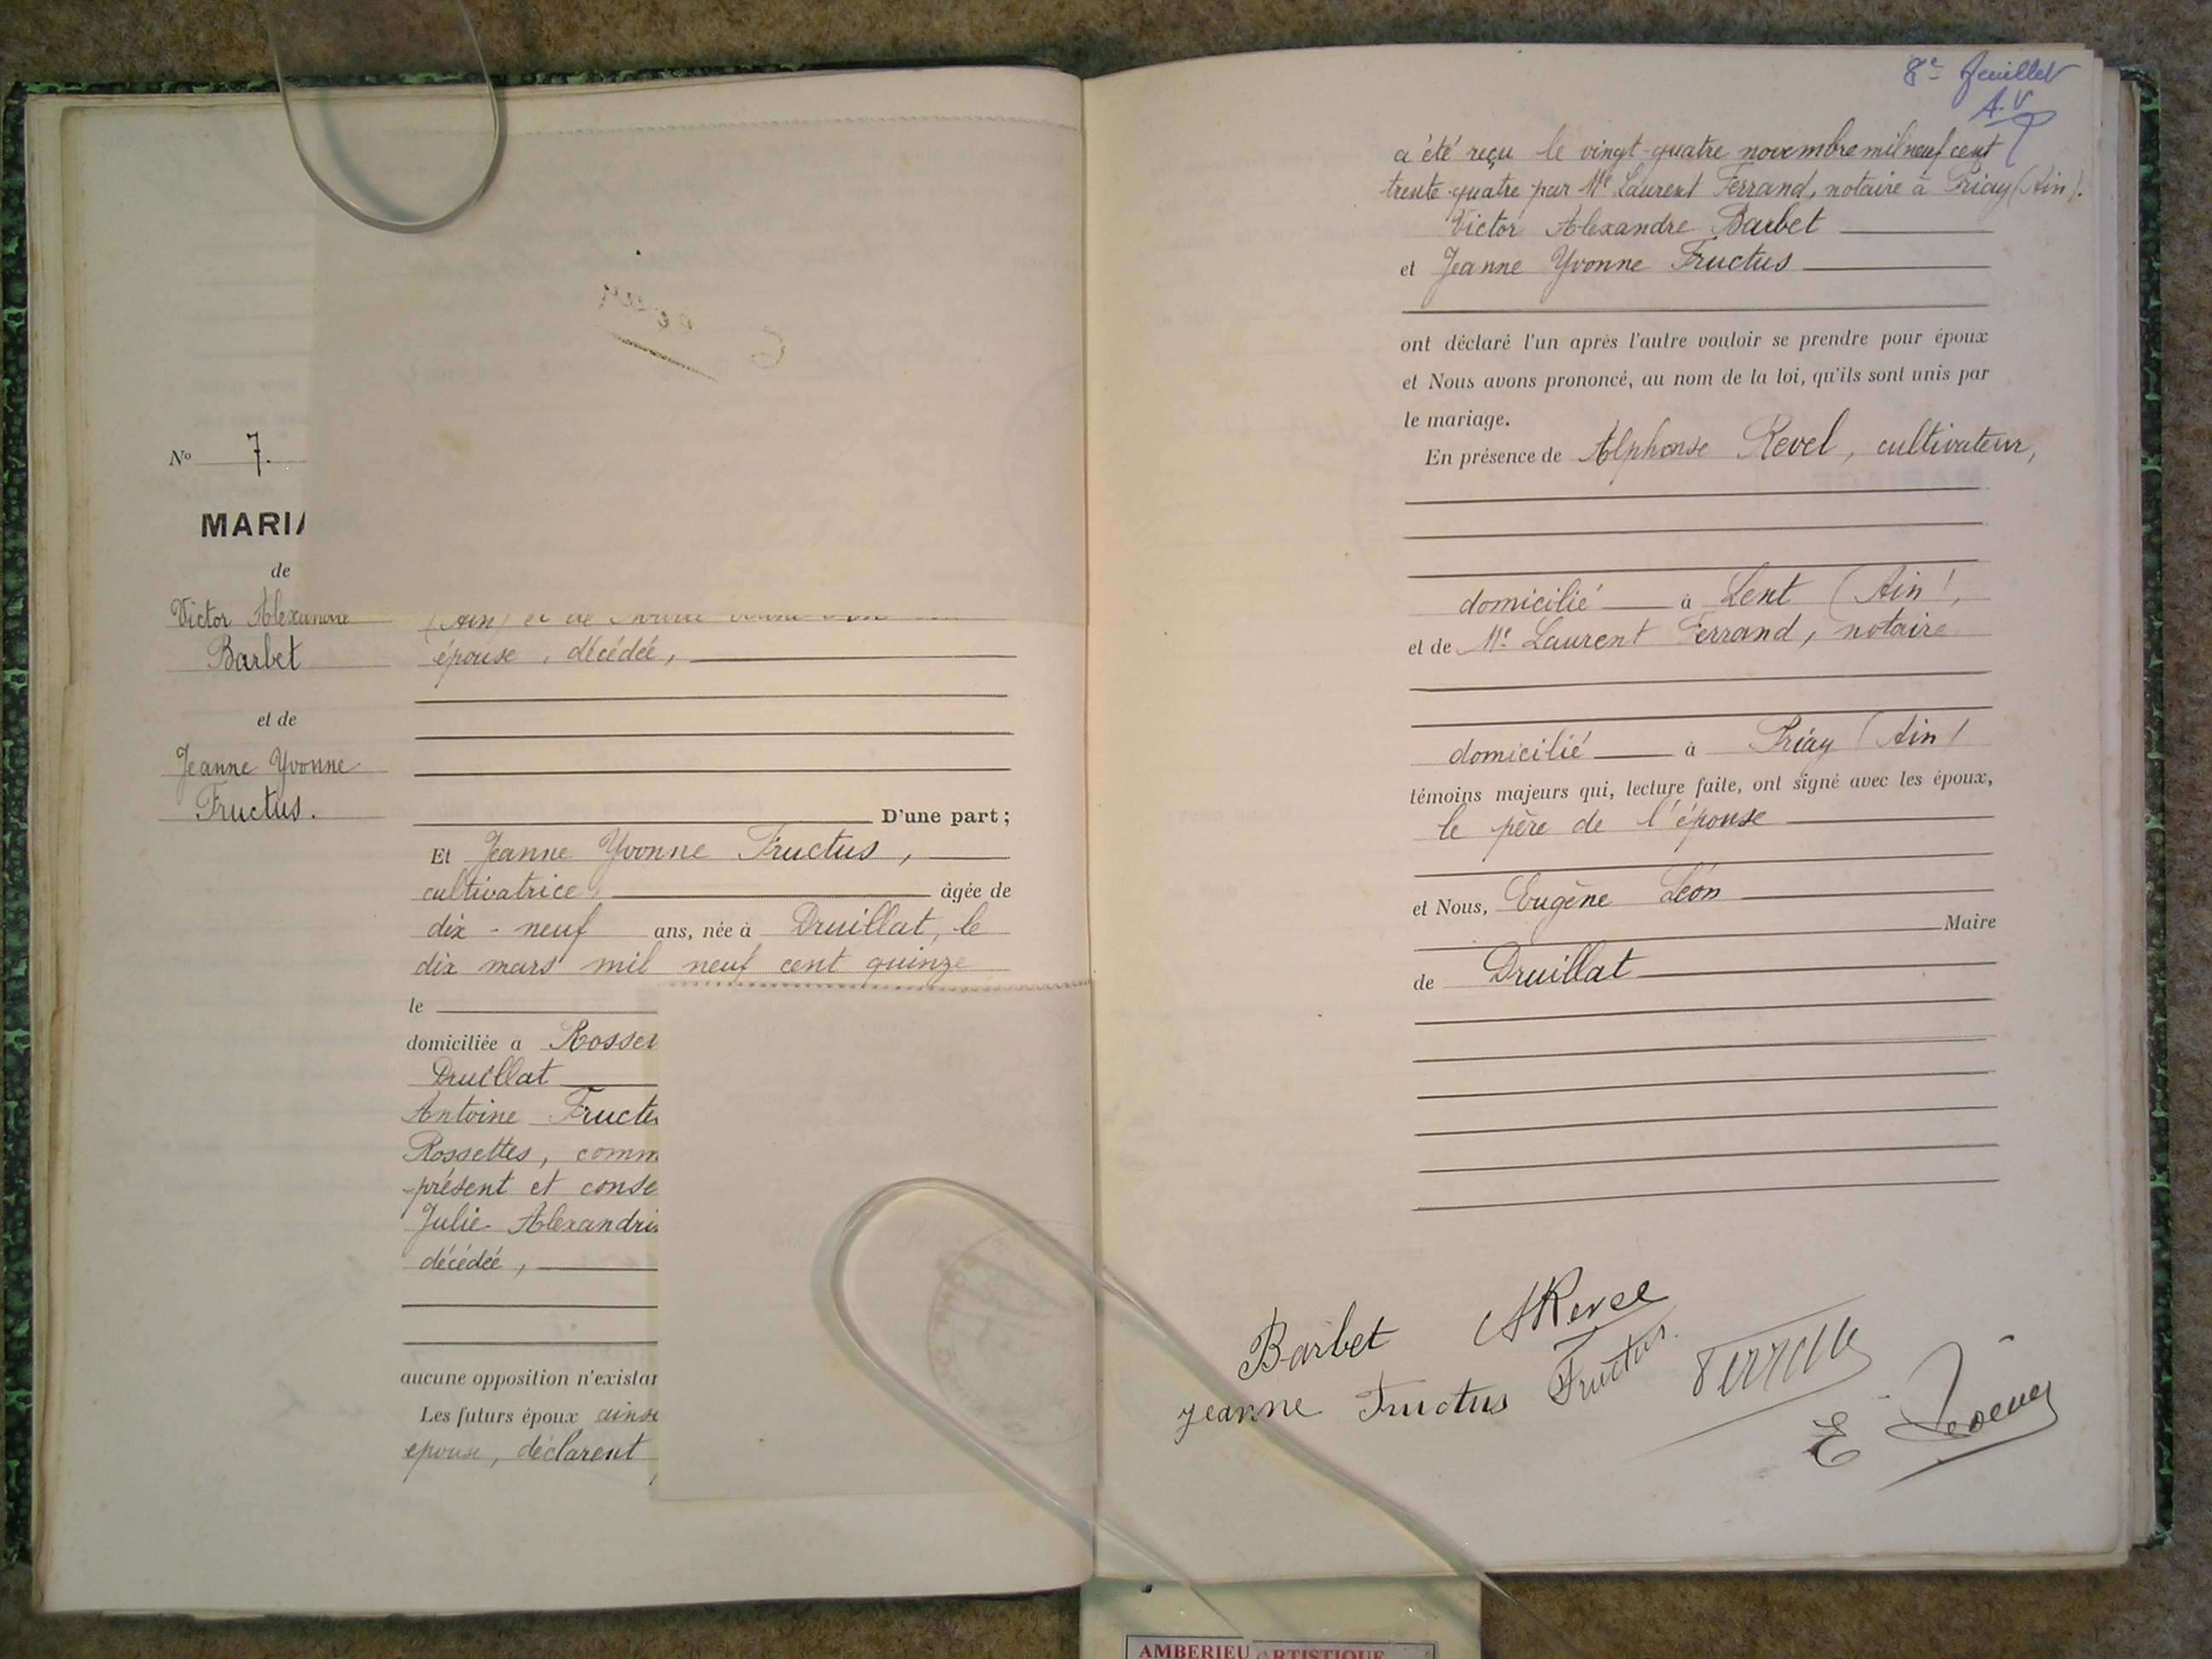 N° 7.
MARIA
de
Victor Alexandre
Barbet
et de
Jeanne Yvonne
Fructus.
épouse, décédée,
D'une part;
Et Jeanne Yvonne Fructus,
cultivatrice, âgée de
dix-neuf ans, née à Druillat, le
dix mars mil neuf cent quinze
le
domiciliée à Rosset
Druillat
Antoine Fructu
Rossettes, comm
présent et conse
Julie Alexandri
décédée,
aucune opposition n'existan
Les futurs époux ainsi
épouse, déclarent
8e feuillet
A.V
a été reçu le vingt-quatre novembre mil neuf cent
trente quatre par Me Laurent Ferrand, notaire à Priay (Ain).
Victor Alexandre Barbet
et Jeanne Yvonne Fructus
ont déclaré l'un après l'autre vouloir se prendre pour époux
et Nous avons prononcé, au nom de la loi, qu'ils sont unis par
le mariage.
En présence de Alphonse Revel, cultivateur,
domicilié à Lent (Ain),
et de Me Laurent Ferrand, notaire
domicilié à Priay (Ain)
témoins majeurs qui, lecture faite, ont signé avec les époux,
le père de l'épouse
et Nous, Eugène Léon
Maire
de Druillat
Barbet ARevel
Jeanne Fructus Fructus.
E
AMBERIEU ARTISTIQUE